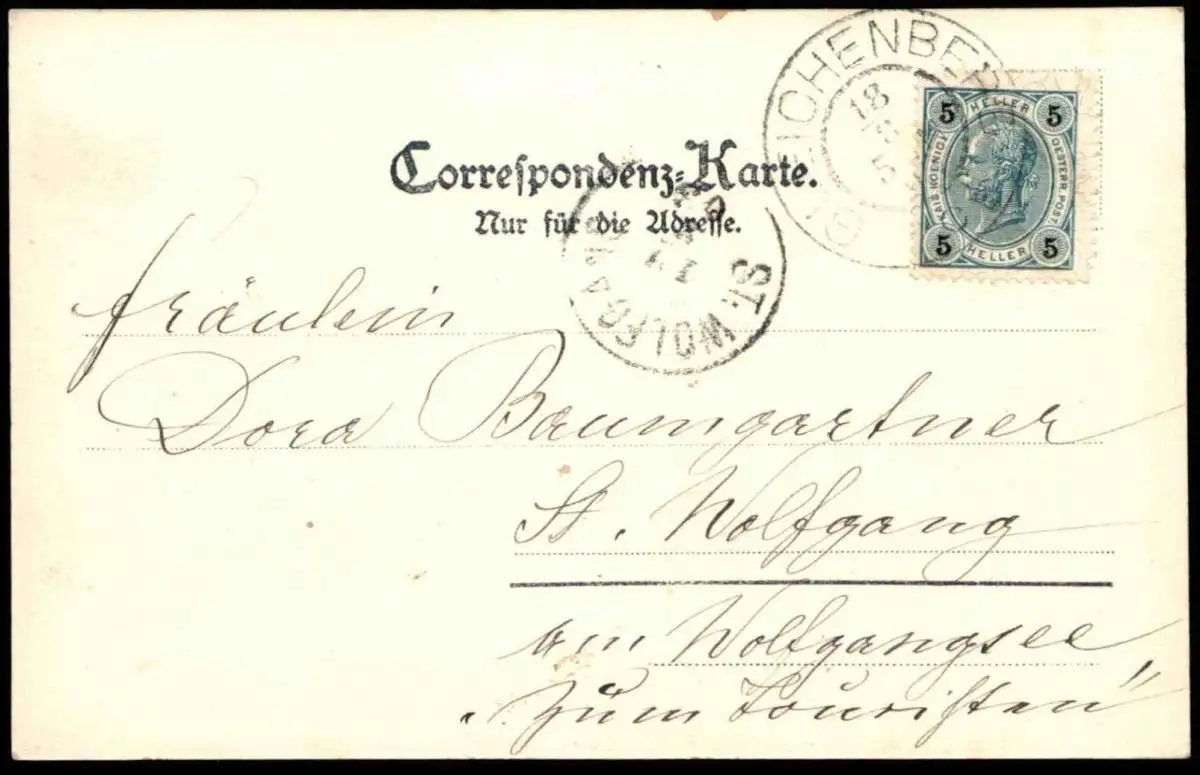 Correspondenz-Karte.
Nur für die Adresse.
ICHENBER
18
5
ST. WOLFGANG
5 HELLER 5
KAIS. KOENIGL. OESTERR. POST.
5 HELLER 5
Fräulein
Dora Baumgartner
St. Wolfgang
am Wolfgangsee
„Zum Touristen"